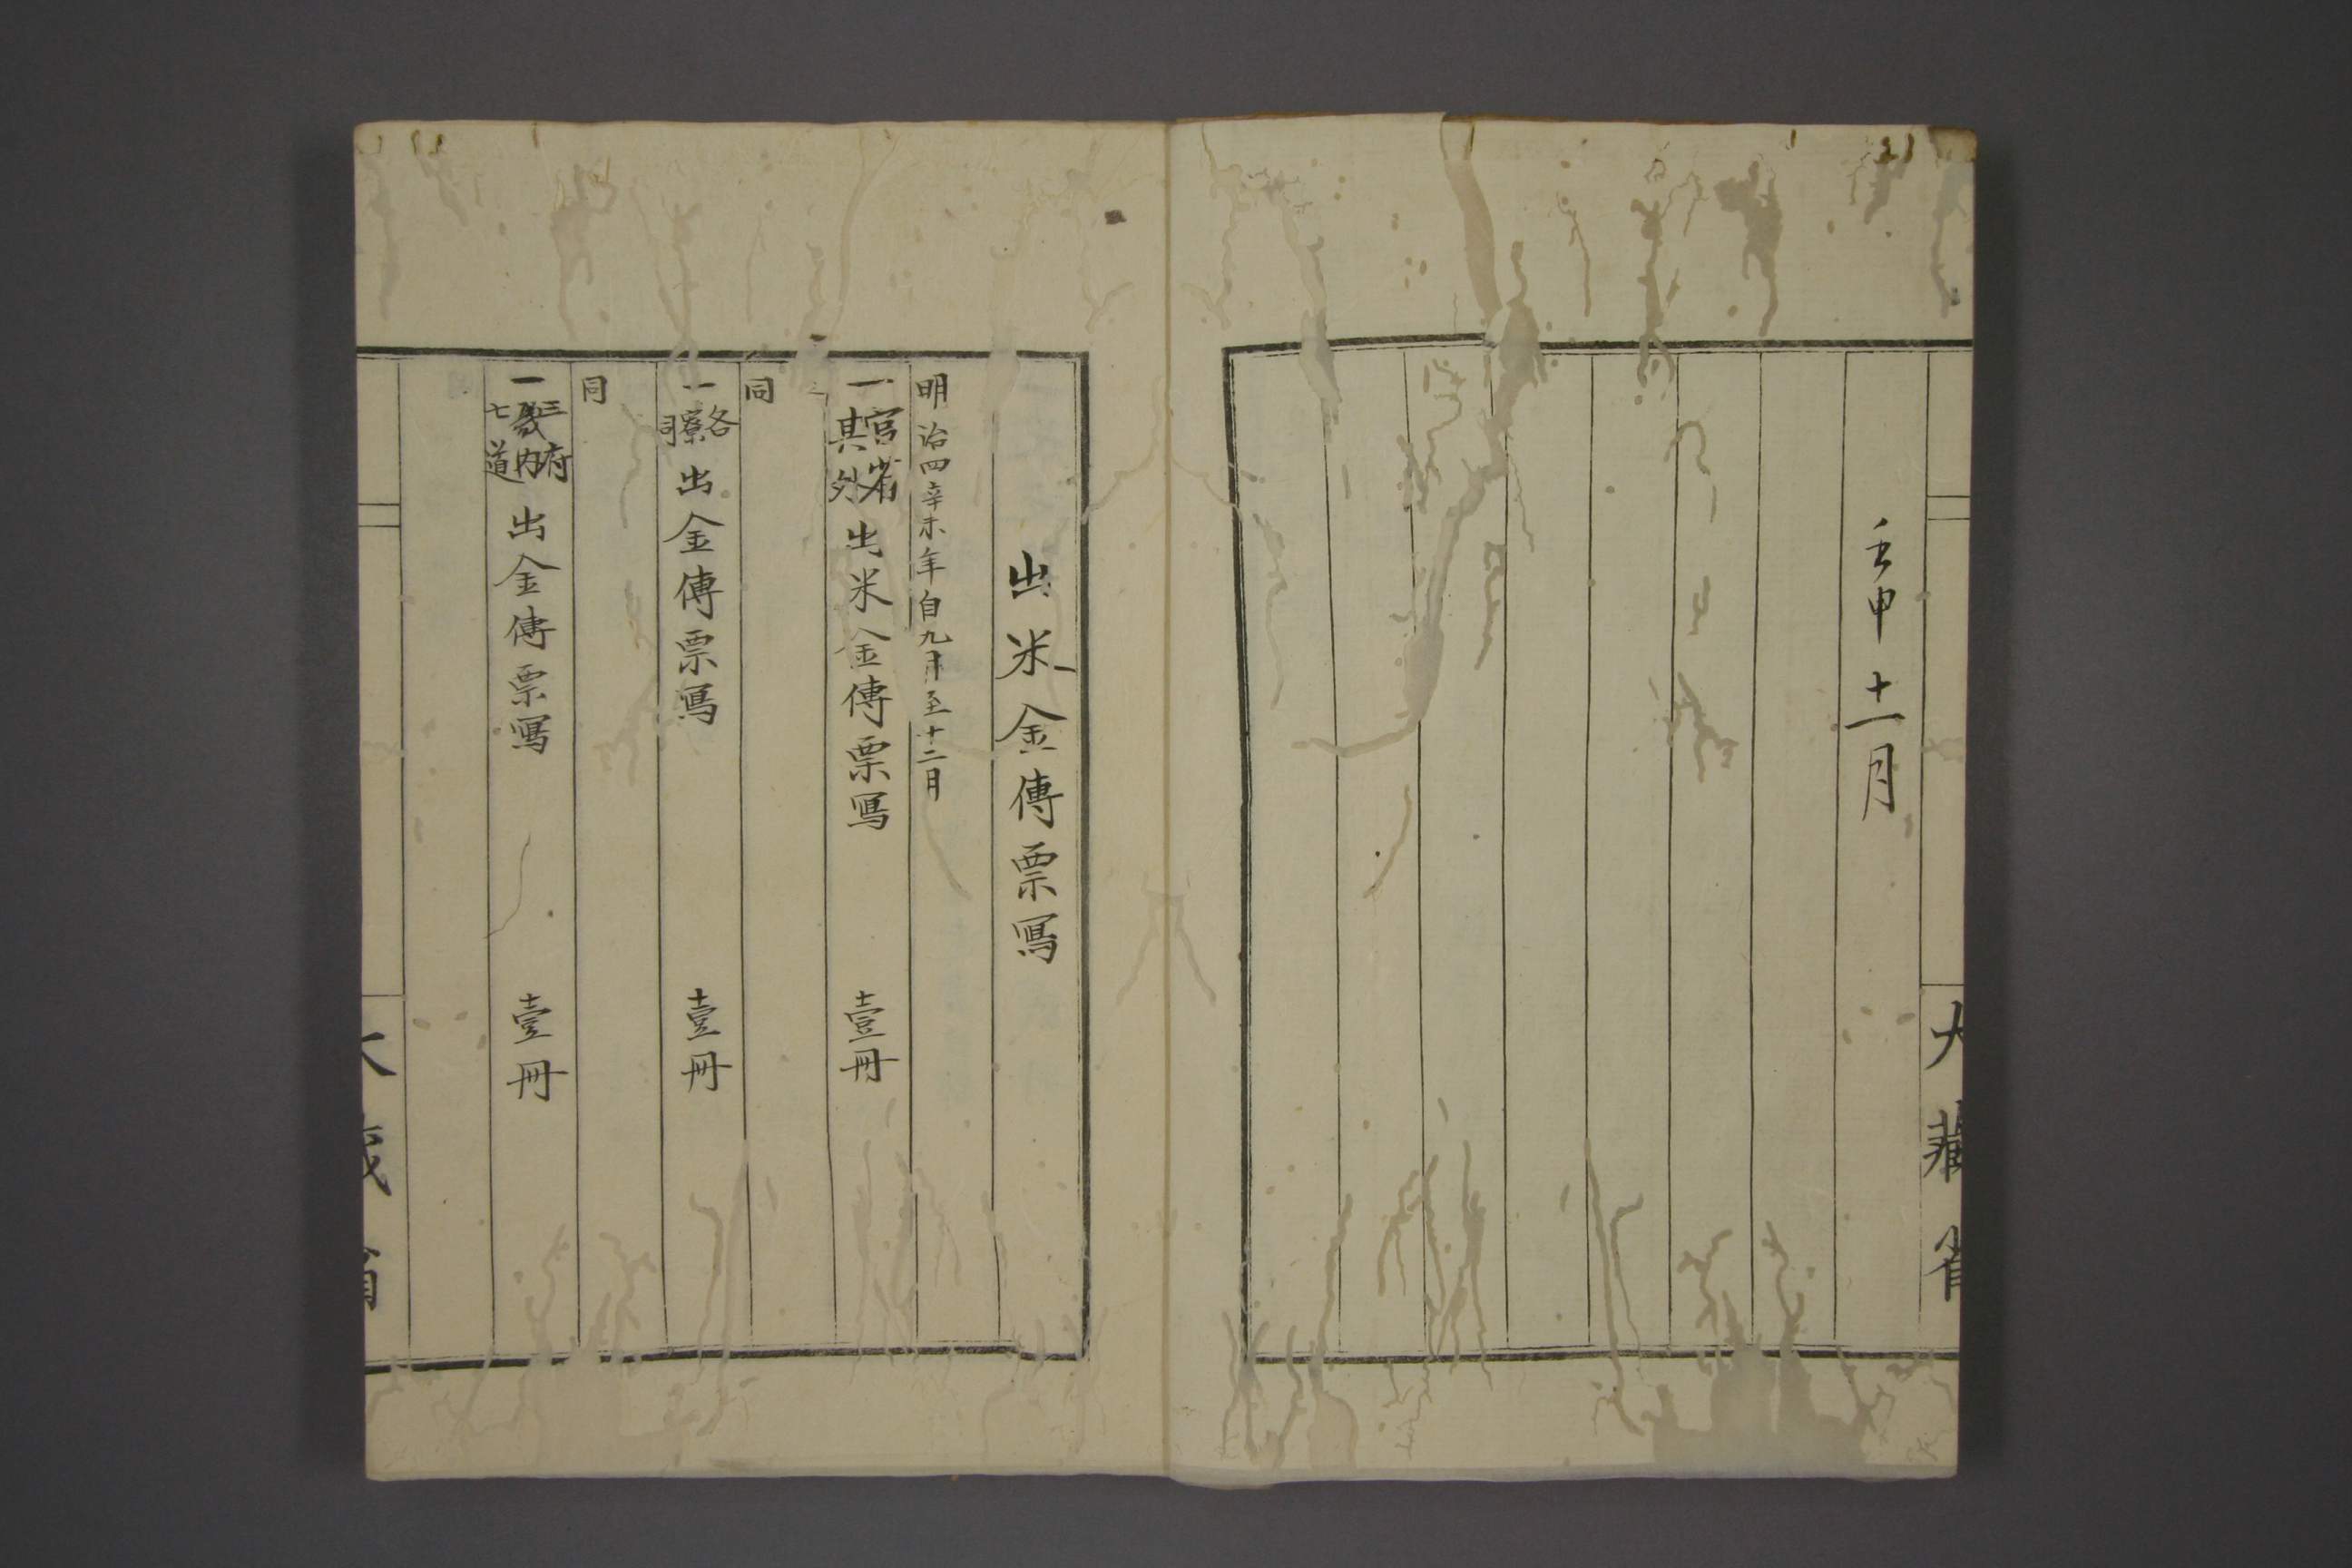 壬申十一月
大藏省
出米金傳票寫
明治四辛未年自九月至十二月
一官省其外出米金傳票寫 壹冊
同
一各寮司出金傳票寫 壹冊
同
一三府畿内七道出金傳票寫 壹冊
大藏省